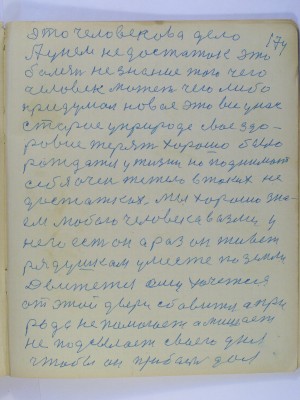 это человекова дело 174
А у нем недостаток это
болезн не знание того чего
человек может чего либо
придумал новае это все у нас
старае у природе свае здо-
ровие терят хорошо было
рождатся у жизни но поднимат
себя очен тежело в таких не
достатках мы хорошо зна-
ем любого человека возми у
него ест он а раз он живет
рядушкам у месте по земли
движется ему хочется
от этой двери
рода не помогает а мешает
не подсылает своего дня
чтобы он прибыл дол